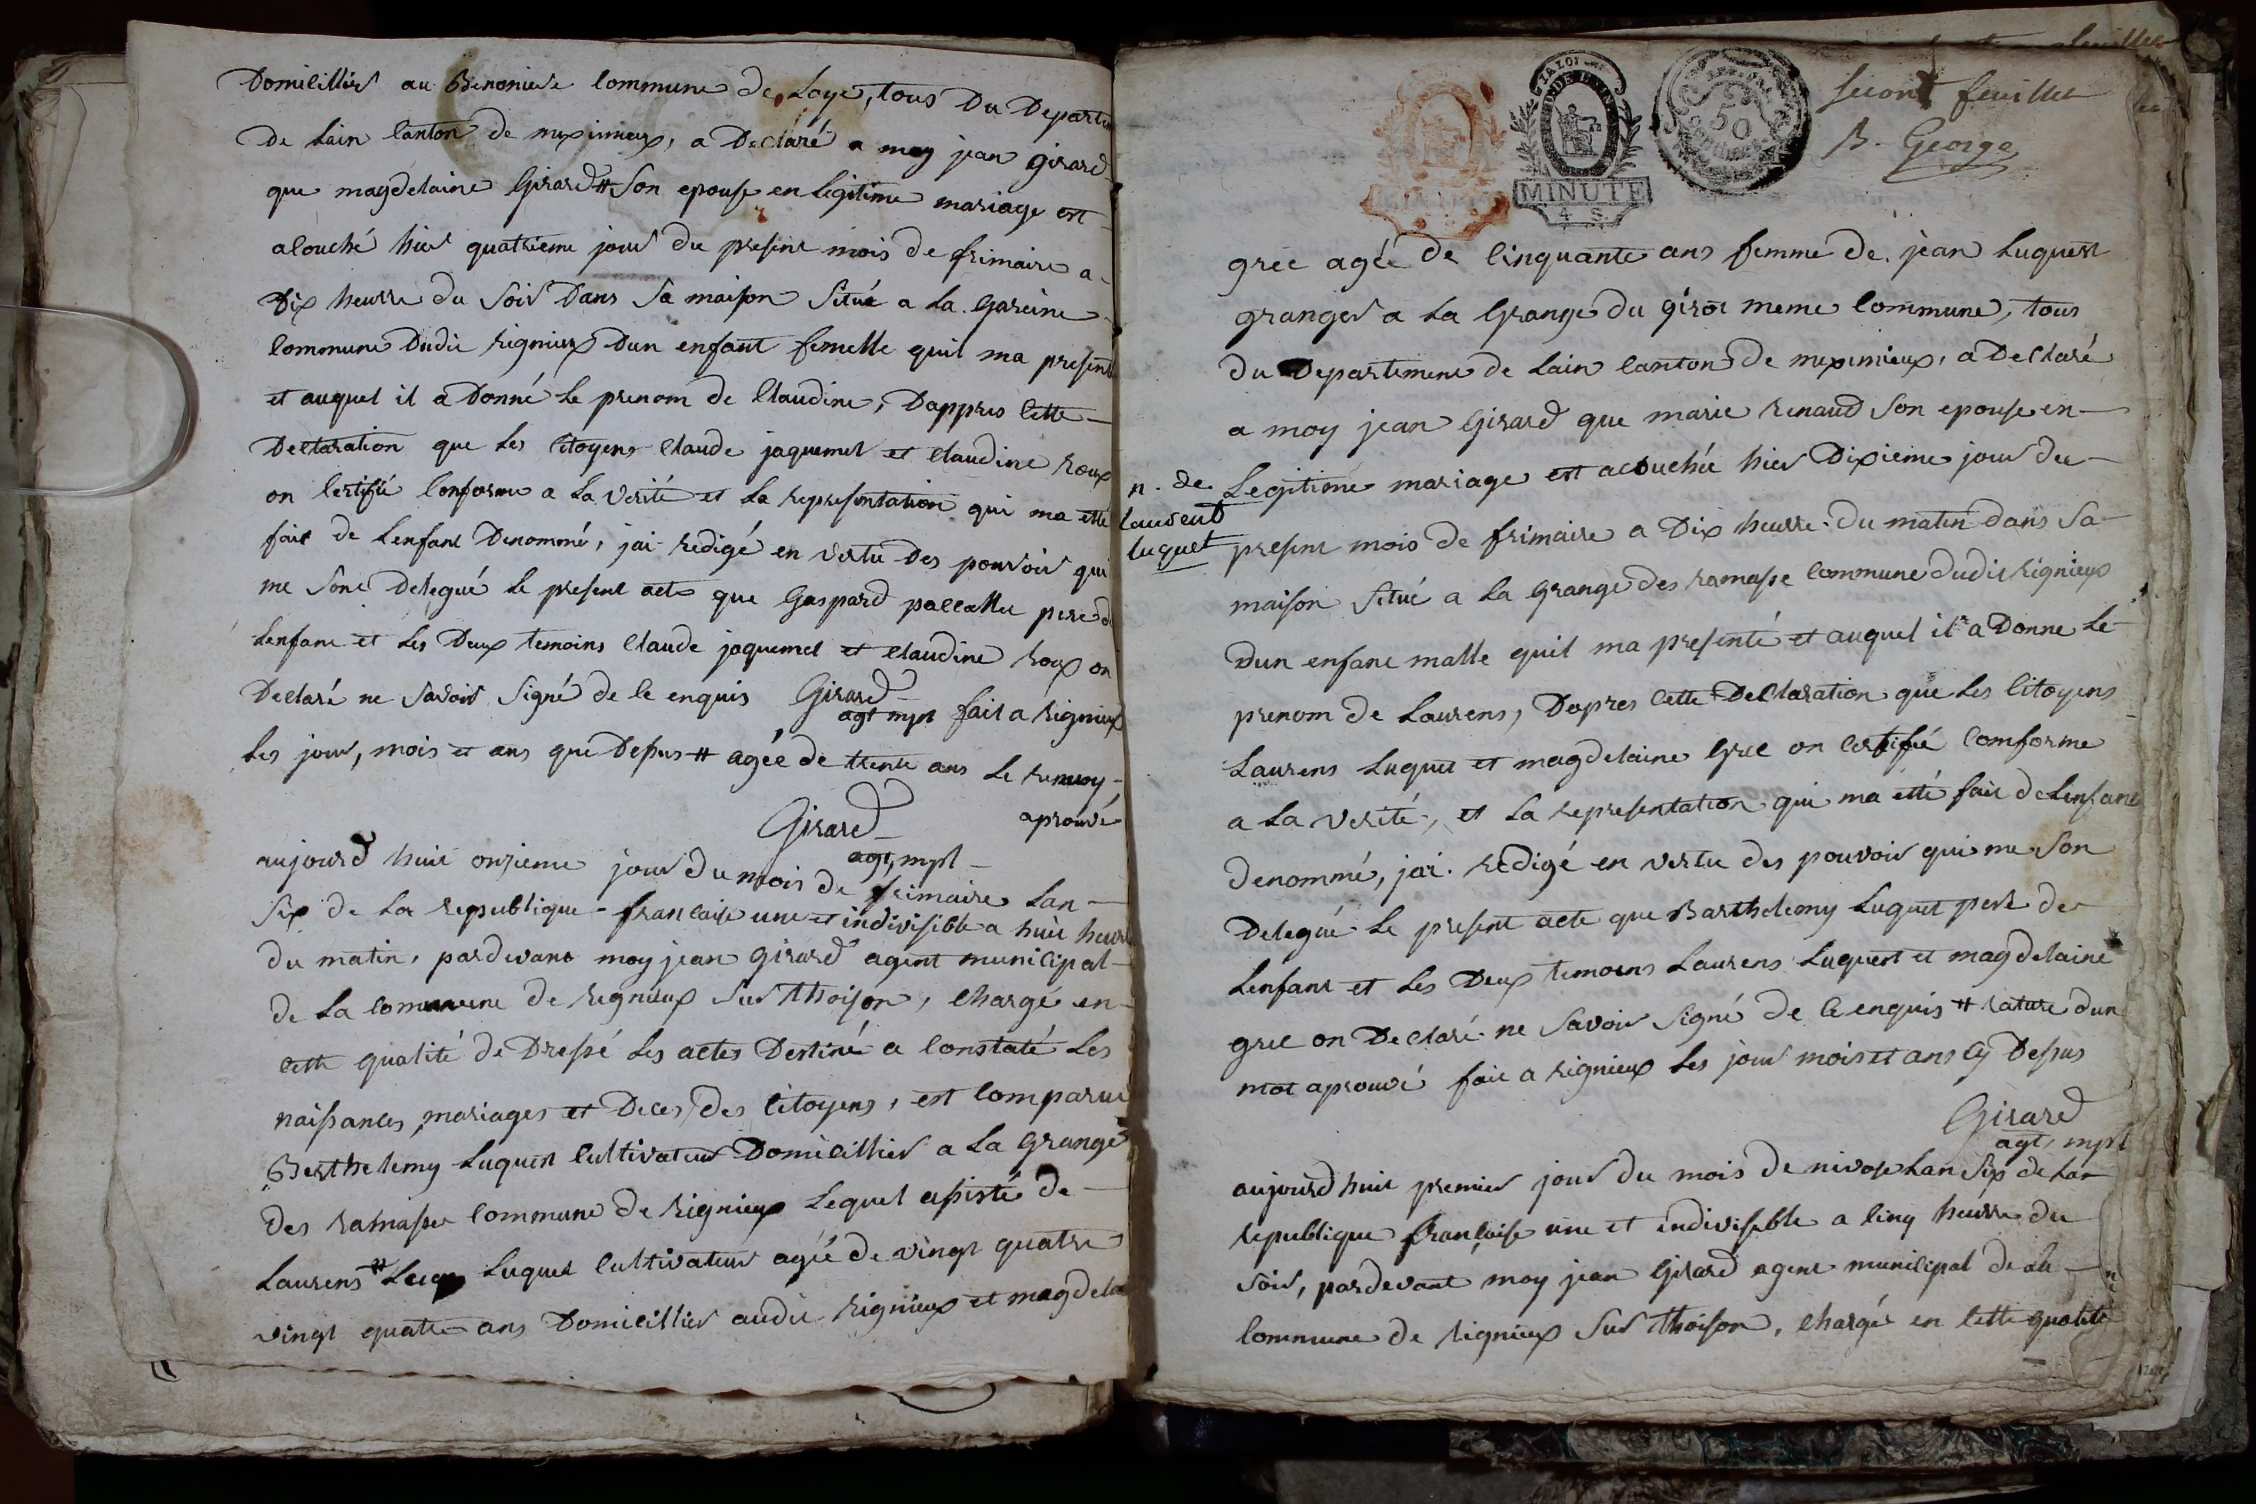 Domicillier au Benoniere Commune de Loye, tous Du Departe
De Lain Canton de meximieux, a Declaré a moy jean girard
que magdelaine Girard # Son epouse en Legitime mariage est
acouché hier quatrieme jour du present mois de frimaire a
Dix heurre du Soir Dans Sa maison Situé a La Gareine
Commune Dudit Rignieux Dun enfant femelle quil ma presenté
et auquel il a Donné Le prenom de Claudine, Dappres Cette
Declaration que Les Citoyens Claude jaquemet et Claudine Roux
on Certifié Conforme a La Verité et La representation qui ma etté
fait De Lenfant Denommé, jai redigé en vertu Des pouvoir qui
me Sont Delegué Le present acte que Gaspard pere d
Lenfant et Les Deux temoins Claude jaquemet et Claudine Roux on
Declaré ne Savoir Signé de Ce enquis Girard
agt mpl fait a Rignieux
Les jour, mois et ans que Depus # agée de trente ans Le renvoy
aprouvé
Girard
agt, mpl
aujourd huit onzieme jour du mois de frimaire Lan
Six de La republique francaise une et indivisible a huit heurre
du matin, pardevant moy jean Girard agent municipal
de La Commune de Rignieux Sur Thoison, Chargé en
Cette qualité de Dressé Les actes Destiné a Constaté Les
naissances, mariages et Deces des Citoyens, est Comparu
Berthelemy Luquet Cultivateur Domicillier a La Grange
Des ramasse Commune de Rignieux Lequel assisté de
Laurens # Luquet Cultivateur agée de vingt quatre
vingt quatre ans Domicillier audit Rignieux et magdelai
second feuillet
B. George
LA LOI
MINUTE
4 S.
50
gréé agée de Cinquante ans femme de jean Luquest
granger a La Grange du girot meme Commune, tous
du Departement de Lain Canton de meximieux, a Declaré
a moy jean Girard que marie renaud Son epouse en
Legitime mariage est acouchée hier Dixieme jour du
n. de
laurent
luquet
present mois de frimaire a Dix heurre du matin dans Sa
maison Situé a La Grange des ramasse Commune dudit Rignieux
Dun enfant malle quil ma presenté et auquel il a Donne Le
prenom de Laurens, Dapres Cette Declaration que Les Citoyens
Laurens Luquet et magdelaine Gree on Certifié Comforme
a La verité, et La representation qui ma etté fait de Lenfant
denommé, jai redigé en vertu des pouvoir qui me Son
Delegué Le present acte que Barthelemy Luquet pere de
Lenfant et Les Deux temoins Laurens Luquest et magdelaine
gree on Declaré ne Savoir Signé de Ce enquis # rature dun
mot aprouvé fait a Rignieux Les jour mois et ans Cy Dessus
Girard
agt, mpl
aujourd huit premier jour du mois de nivose Lan Six de La
republique francoise une et indivisible a Cinq heurre du
Soir, pardevant moy jean Girard agent municipal de la
Commune de Rignieux Sur Thoison, Chargé en Cette qualité